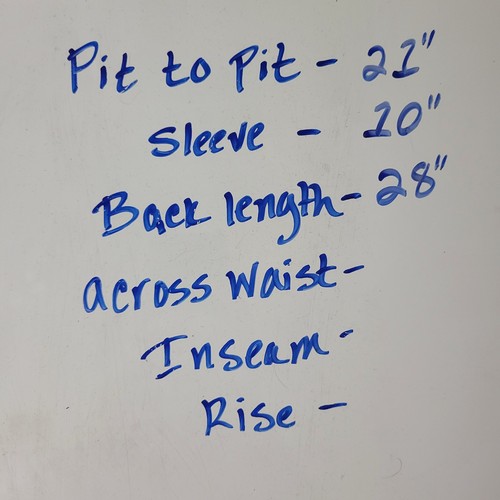 Pit to Pit - 21"
Sleeve - 10"
Back length - 28"
across waist -
Inseam -
Rise -